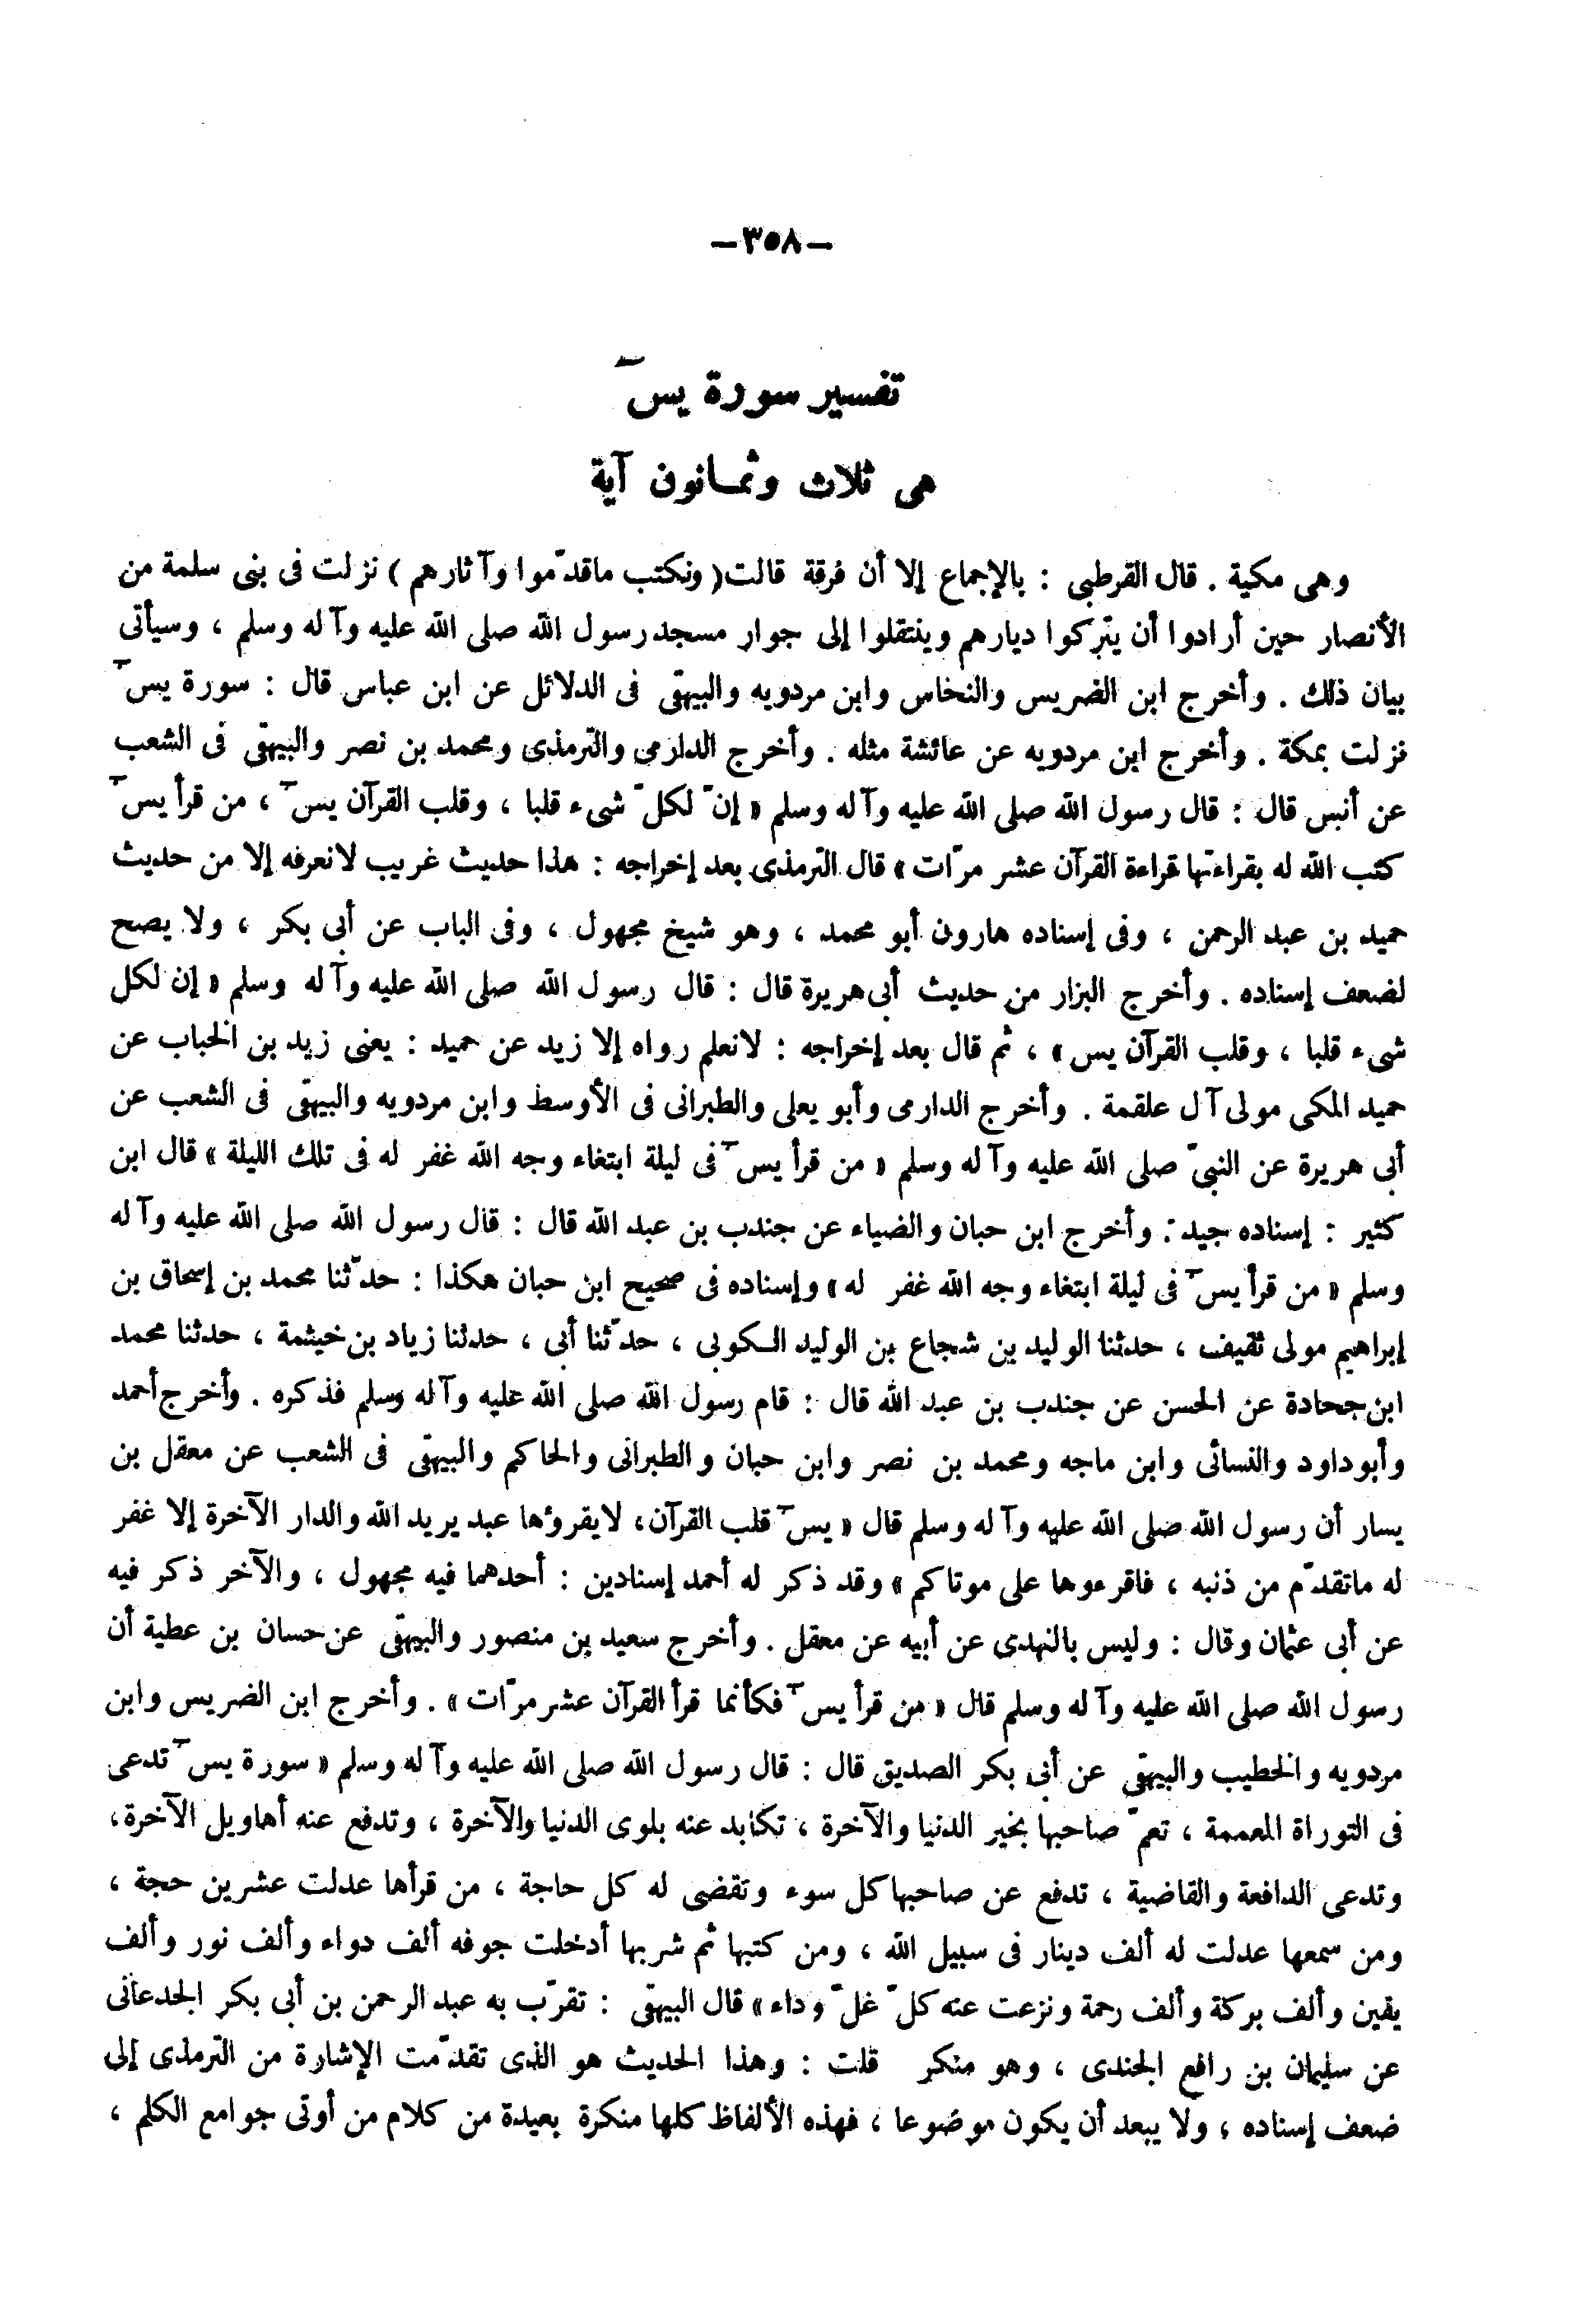 —٣٥٨—
تفسير سورة يسٓ
هى ثلاث وثمـانون آية
وهى مكية . قال القرطبى : بالإجماع إلا أن فرقة قالت ( ونكتب ماقدّموا وآثارهم ) نزلت فى بنى سلمة من
الأنصار حين أرادوا أن يتركوا ديارهم وينتقلوا إلى جوار مسجد رسول الله صلى الله عليه وآله وسلم ، وسيأتى
بيان ذلك . وأخرج ابن الضريس والنحاس وابن مردويه والبيهقى فى الدلائل عن ابن عباس قال : سورة يسٓ
نزلت بمكة . وأخرج ابن مردويه عن عائشة مثله . وأخرج الدارمى والترمذى ومحمد بن نصر والبيهقى فى الشعب
عن أنس قال : قال رسول الله صلى الله عليه وآله وسلم « إنّ لكلّ شىء قلبا ، وقلب القرآن يسٓ ، من قرأ يسٓ
كتب الله له بقراءتها قراءة القرآن عشر مرّات » قال الترمذى بعد إخراجه : هذا حديث غريب لانعرفه إلا من حديث
حميد بن عبد الرحمن ، وفى إسناده هارون أبو محمد ، وهو شيخ مجهول ، وفى الباب عن أبى بكر ، ولا يصح
لضعف إسناده . وأخرج البزار من حديث أبى هريرة قال : قال رسول الله صلى الله عليه وآله وسلم « إن لكل
شىء قلبا ، وقلب القرآن يس » ، ثم قال بعد إخراجه : لانعلم رواه إلا زيد عن حميد : يعنى زيد بن الحباب عن
حميد المكى مولى آل علقمة . وأخرج الدارمى وأبو يعلى والطبرانى فى الأوسط وابن مردويه والبيهقى فى الشعب عن
أبى هريرة عن النبىّ صلى الله عليه وآله وسلم « من قرأ يسٓ فى ليلة ابتغاء وجه الله غفر له فى تلك الليلة » قال ابن
كثير : إسناده جيد . وأخرج ابن حبان والضياء عن جندب بن عبد الله قال : قال رسول الله صلى الله عليه وآله
وسلم « من قرأ يسٓ فى ليلة ابتغاء وجه الله غفر له » وإسناده فى صحيح ابن حبان هكذا : حدّثنا محمد بن إسحاق بن
إبراهيم مولى ثقيف ، حدثنا الوليد بن شجاع بن الوليد السكونى ، حدّثنا أبى ، حدثنا زياد بن خيثمة ، حدثنا محمد
ابن جحادة عن الحسن عن جندب بن عبد الله قال : قام رسول الله صلى الله عليه وآله وسلم فذكره . وأخرج أحمد
وأبوداود والنسائى وابن ماجه ومحمد بن نصر وابن حبان والطبرانى والحاكم والبيهقى فى الشعب عن معقل بن
يسار أن رسول الله صلى الله عليه وآله وسلم قال « يسٓ قلب القرآن، لايقرؤها عبد يريد الله والدار الآخرة إلا غفر
له ماتقدّم من ذنبه ، فاقرءوها على موتاكم » وقد ذكر له أحمد إسنادين : أحدهما فيه مجهول ، والآخر ذكر فيه
عن أبى عثمان وقال : وليس بالنهدى عن أبيه عن معقل . وأخرج سعيد بن منصور والبيهقى عن حسان بن عطية أن
رسول الله صلى الله عليه وآله وسلم قال « من قرأ يسٓ فكأنما قرأ القرآن عشر مرّات » . وأخرج ابن الضريس وابن
مردويه والخطيب والبيهقى عن أبى بكر الصديق قال : قال رسول الله صلى الله عليه وآله وسلم « سورة يسٓ تدعى
فى التوراة المعممة ، تعمّ صاحبها بخير الدنيا والآخرة ، تكابد عنه بلوى الدنيا والآخرة ، وتدفع عنه أهاويل الآخرة،
وتدعى الدافعة والقاضية ، تدفع عن صاحبها كل سوء وتقضى له كل حاجة ، من قرأها عدلت عشرين حجة ،
ومن سمعها عدلت له ألف دينار فى سبيل الله ، ومن كتبها ثم شربها أدخلت جوفه ألف دواء وألف نور وألف
يقين وألف بركة وألف رحمة ونزعت عنه كلّ غلّ وداء » قال البيهقى : تقرّب به عبد الرحمن بن أبى بكر الجدعانى
عن سليمان بن رافع الجندى ، وهو منكر قلت : وهذا الحديث هو الذى تقدّمت الإشارة من الترمذى إلى
ضعف إسناده ، ولا يبعد أن يكون موضوعا ، فهذه الألفاظ كلها منكرة بعيدة من كلام من أوتى جوامع الكلم ،